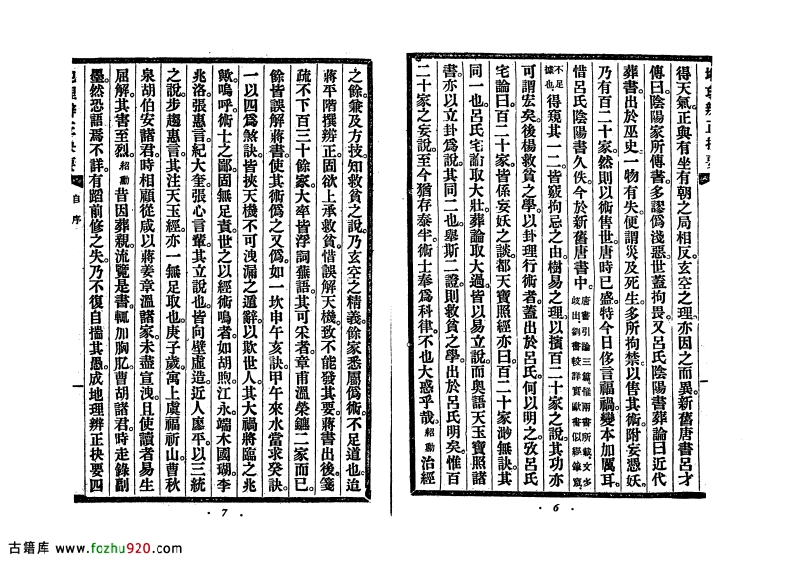 地理辨正抉要
得天氣正與有坐有朝之局相反玄空之理亦因之而異新舊唐書呂才
傳曰陰陽家所傳書多謬爲淺惡世蓋拘畏又呂氏陰陽書葬論曰近代
葬書出於巫史一物有失便謂災及死生多所拘禁以售其術附妄憑妖
乃有百二十家然則以術售世唐時已盛特今日侈言福禍變本加厲耳
惜呂氏陰陽書久佚今於新舊唐書中唐書引論三篇惟兩書所載文多歧出劉書較詳實歐書似經鎔竄
不足據也得窺其一二皆竅拘忌之由樹易之理以擯百二十家之說其功亦
可謂宏矣後楊救貧之學以卦理行術者蓋出於呂氏何以明之攷呂氏
宅論曰百二十家皆係妄妖之談都天寶照經亦曰百二十家渺無訣其
同一也呂氏宅論取大壯葬論取大過皆以易立說而奥語天玉寶照諸
書亦以立卦爲說其同二也舉斯二證則救貧之學出於呂氏明矣惟百
二十家之妄說至今猶存泰半術士奉爲科律不也大惑乎哉紹勳治經
· 6 ·
之餘兼及方技知救貧之說乃玄空之精義餘家悉屬僞術不足道也迨
蔣平階撰辨正固欲上承救貧惜誤解天機致不能發其要蔣書出後箋
疏不下百三十餘家大率皆浮詞蕪語其可采者章甫溫榮鑣二家而已
餘皆誤解蔣書使其術僞之又僞如一坎申午亥訣甲午來水當求癸訣
一以四爲煞訣皆挾天機不可洩漏之遁辭以欺世人其大禍將臨之兆
歟嗚呼術士之鄙固無足責世之以經術鳴者如胡煦江永端木國瑚李
兆洛張惠言紀大奎張心言輩其立說也皆向壁虛造近人廖平以三統
之說步趨惠言其注天玉經亦一無足取也庚子歲寓上虞福祈山曹秋
泉胡伯安諸君時相顧從咸以蔣姜章溫諸家未盡宣洩且使讀者易生
屈解其害至烈紹勳昔因葬親流覽是書輒加胸肊曹胡諸君時走錄副
墨然恐語焉不詳有蹈前修之失乃不復自惴其愚成地理辨正抉要四
地理辨正抉要
自序
· 7 ·
古籍库 www.fozhu920.com